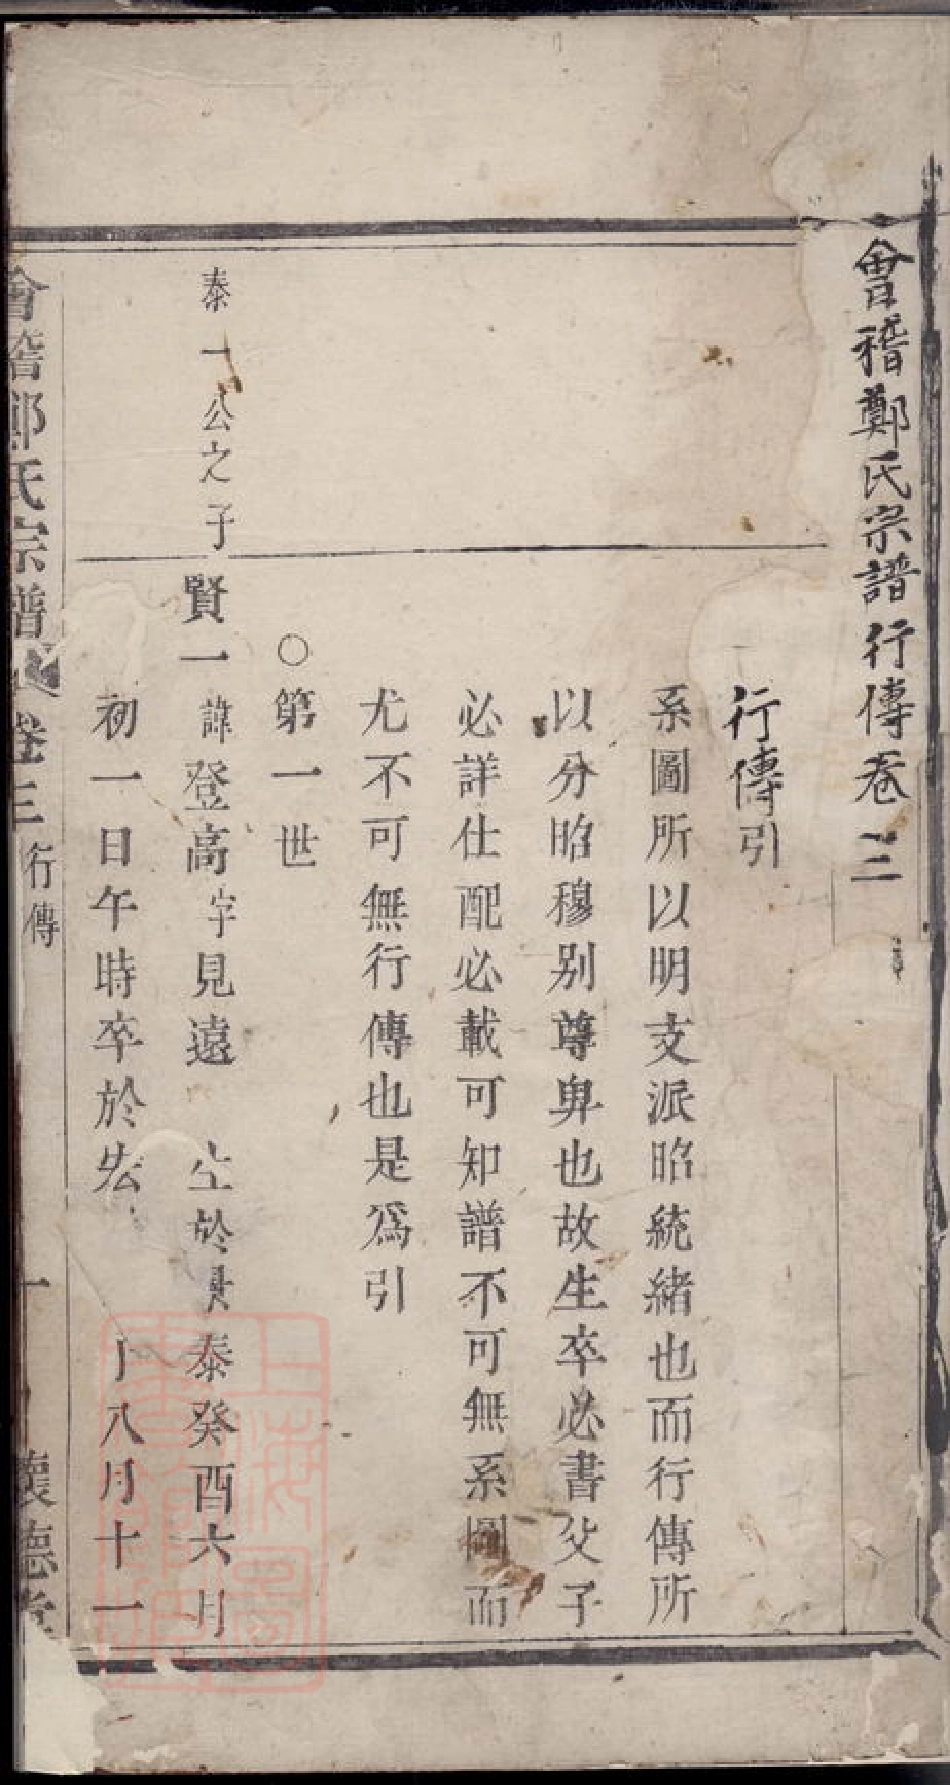 會稽鄭氏宗譜行傳卷三
行傳引
系圖所以明支派昭統緒也而行傳所
以分昭穆别尊卑也故生卒必書父子
必詳仕配必載可知譜不可無系圖而
尤不可無行傳也是爲引
○第一世
泰一公之子
賢一諱登高字見遠 生於 泰癸酉六月
初一日午時卒於 八月十一
會稽鄭氏宗譜 卷三 行傳 一 懷德堂
上海圖書館藏